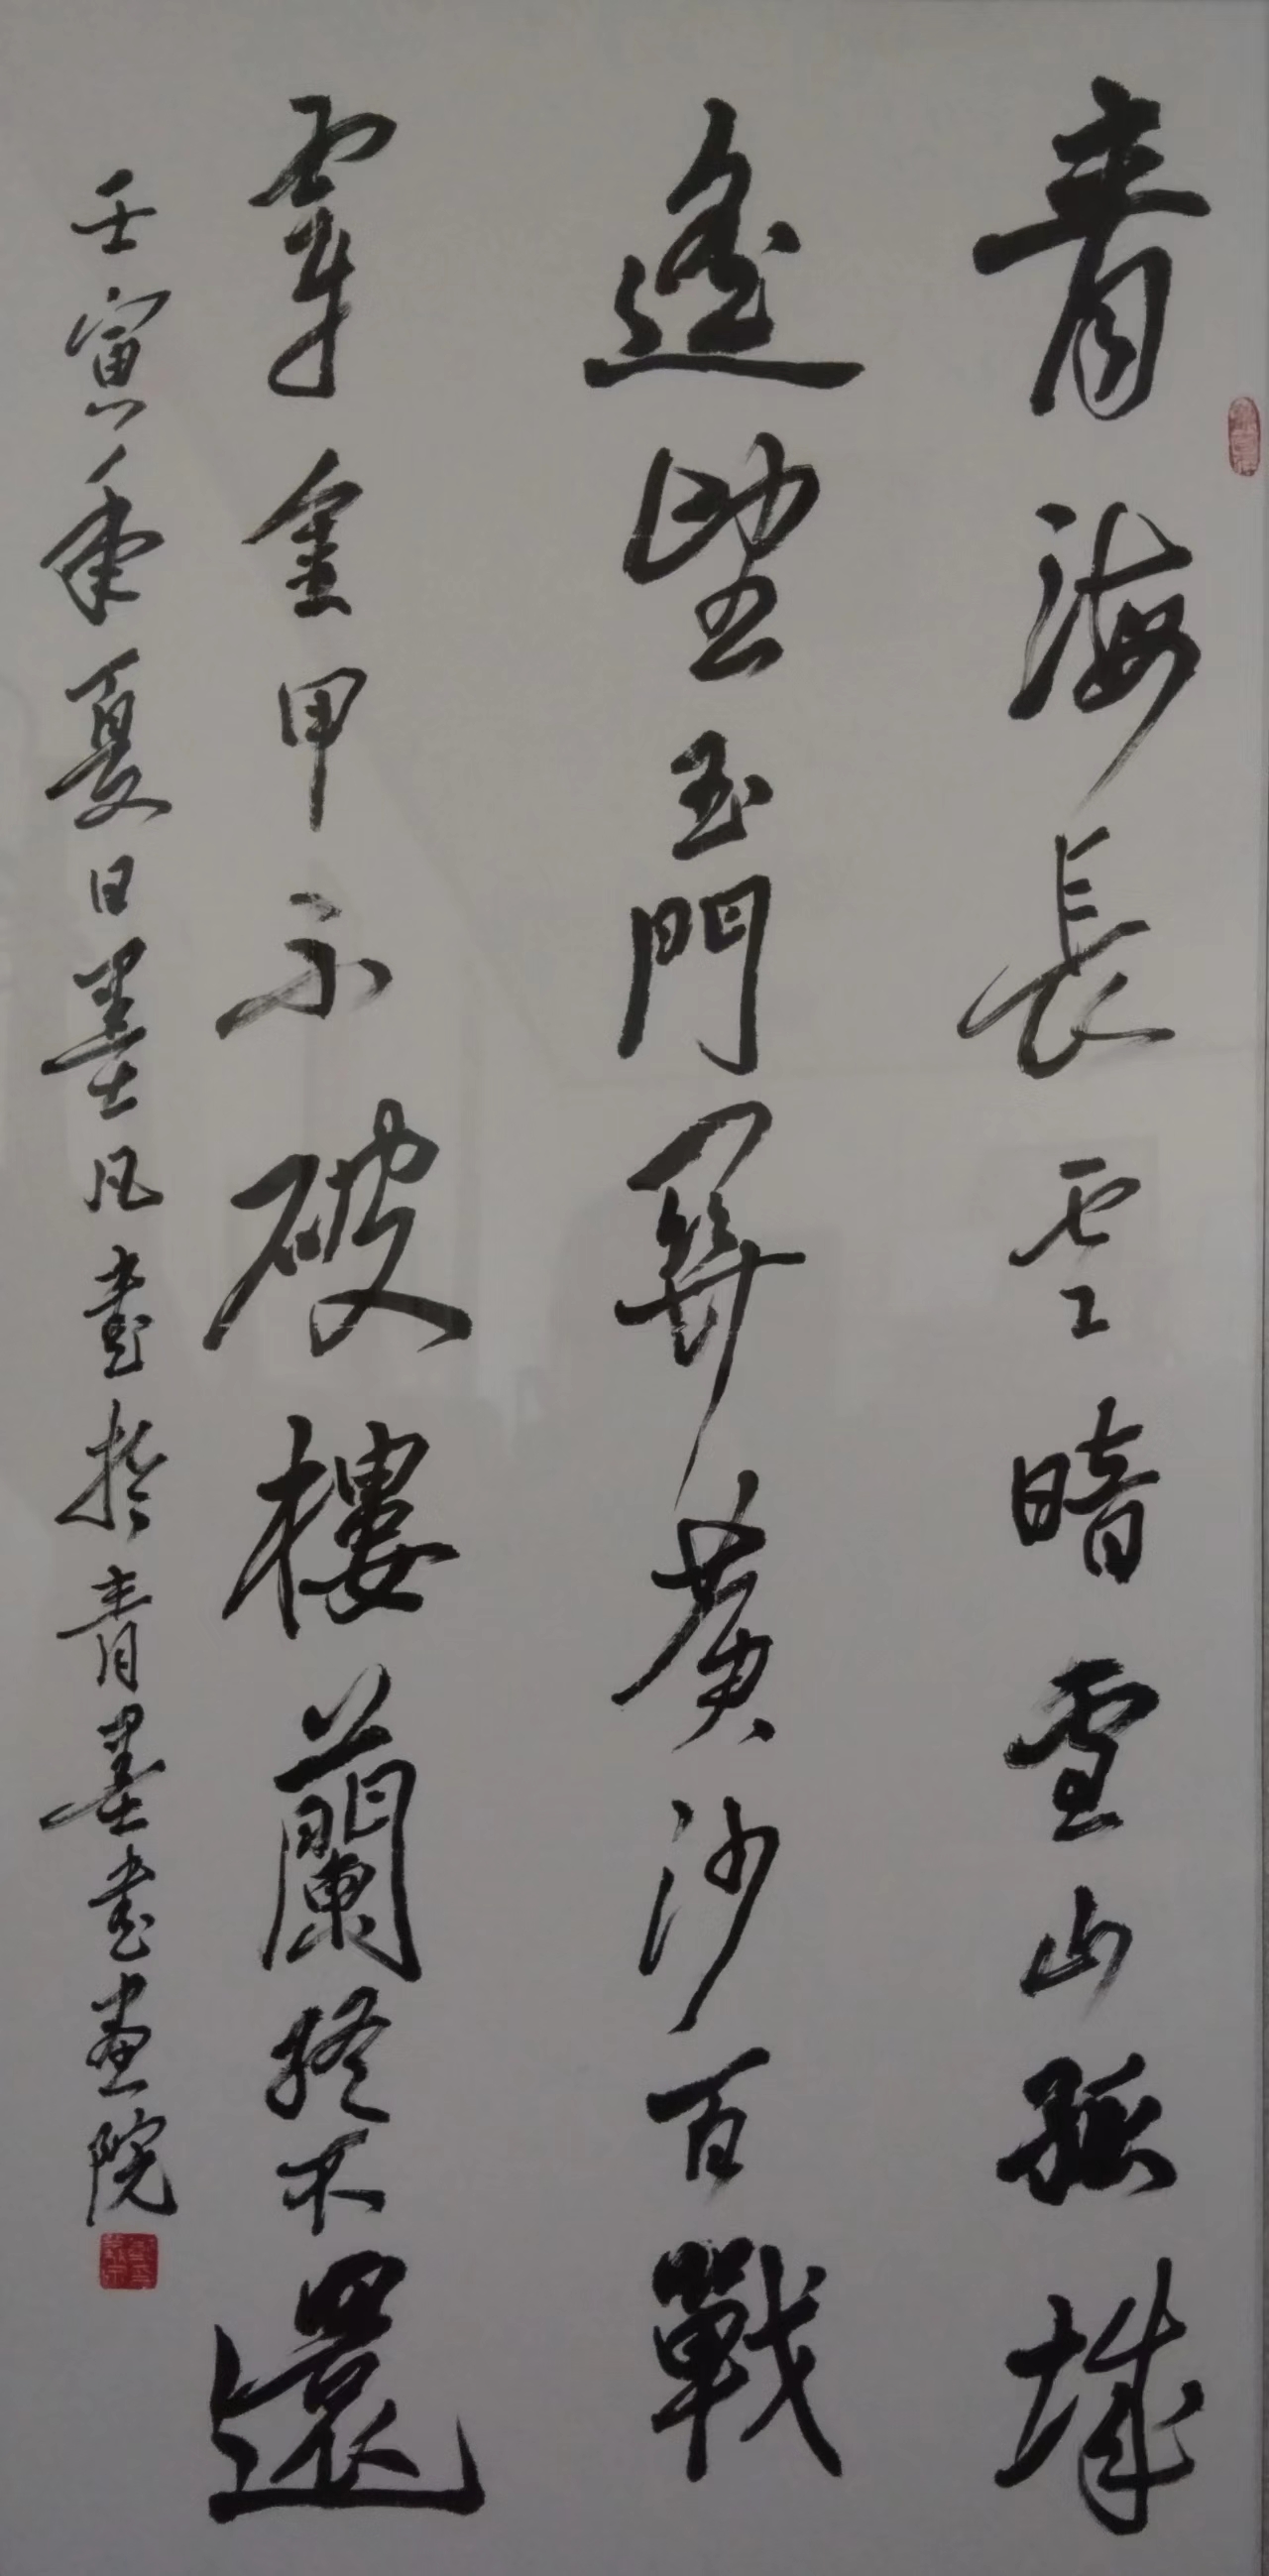 青海長雲暗雪山孤城
遙望玉門關黃沙百戰
穿金甲不破樓蘭終不還
壬寅年夏日墨凡書於青墨書畫院